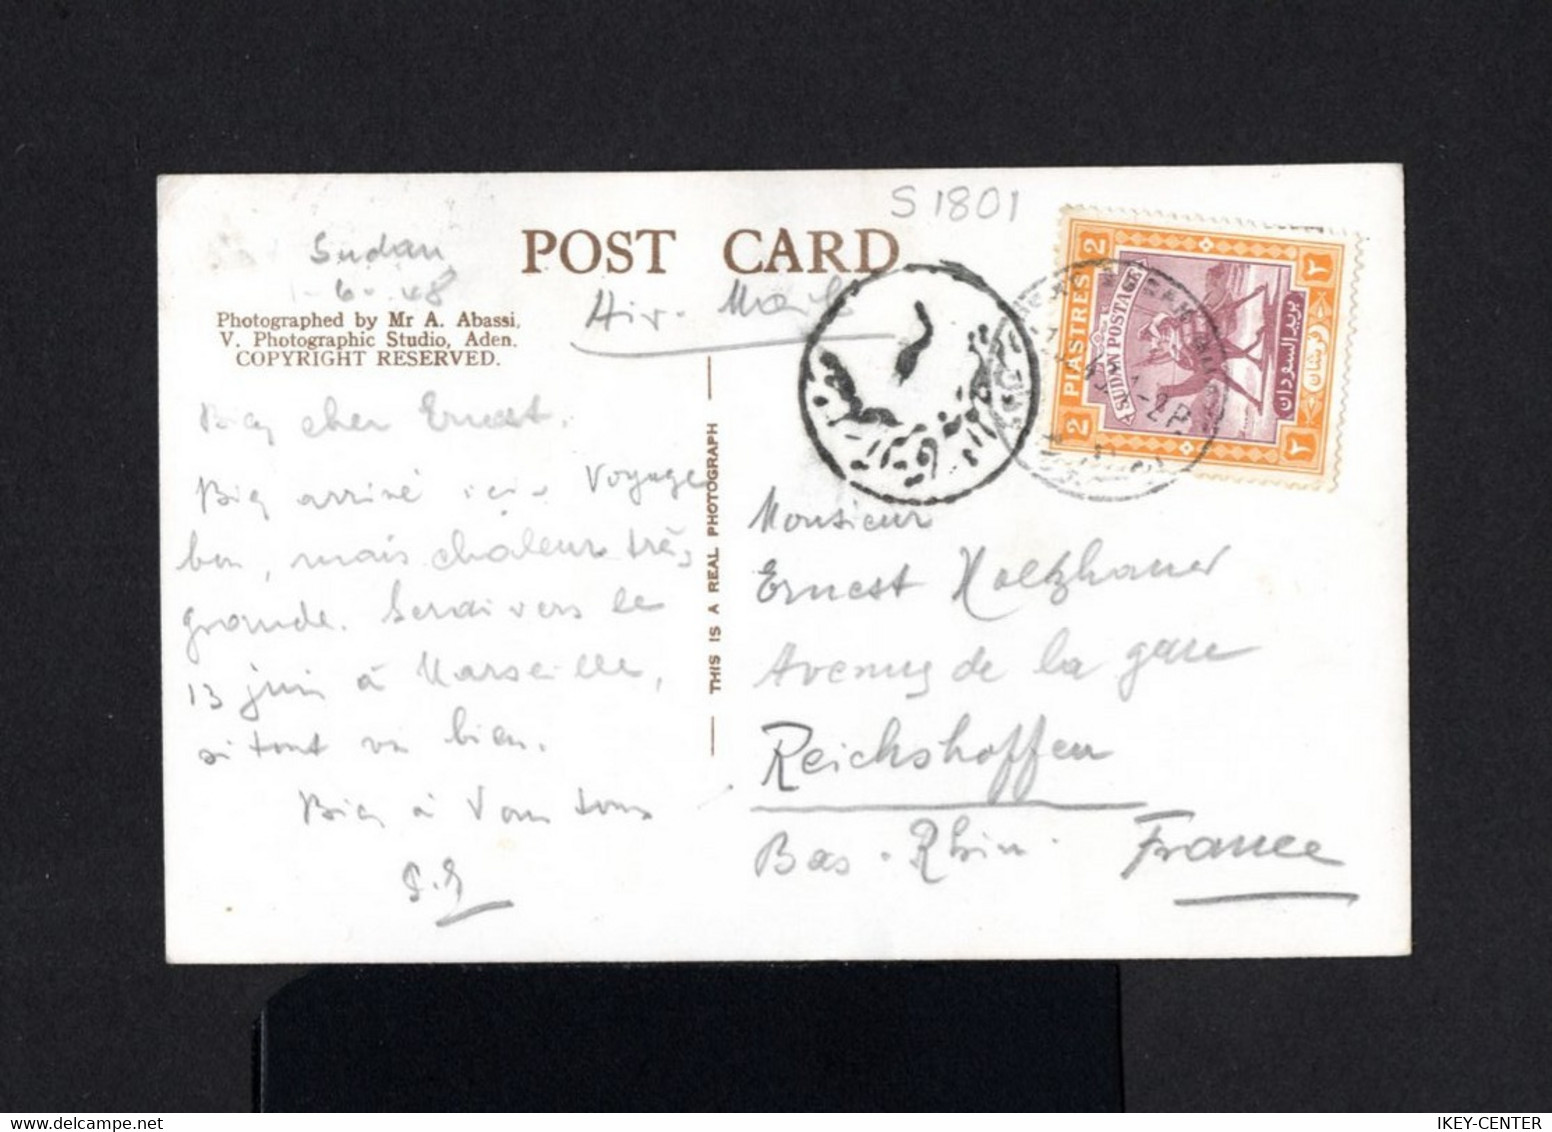 S 1801
POST CARD
Sudan
1-6-48
Air-Mail
Photographed by Mr A. Abassi,
V. Photographic Studio, Aden.
COPYRIGHT RESERVED.
2 PIASTRES 2
SUDAN POSTAGE
بريد السودان
٢ قرشان ٢
Bien cher Ernest.
Bien arrivé ici. Voyage
bon, mais chaleur très
grande. Serai vers le
13 juin à Marseille,
si tout va bien.
Bien à Vous tous
THIS IS A REAL PHOTOGRAPH
Monsieur
Ernest Holtzhauer
Avenue de la gare
Reichshoffen
Bas-Rhin. France
IKEY-CENTER